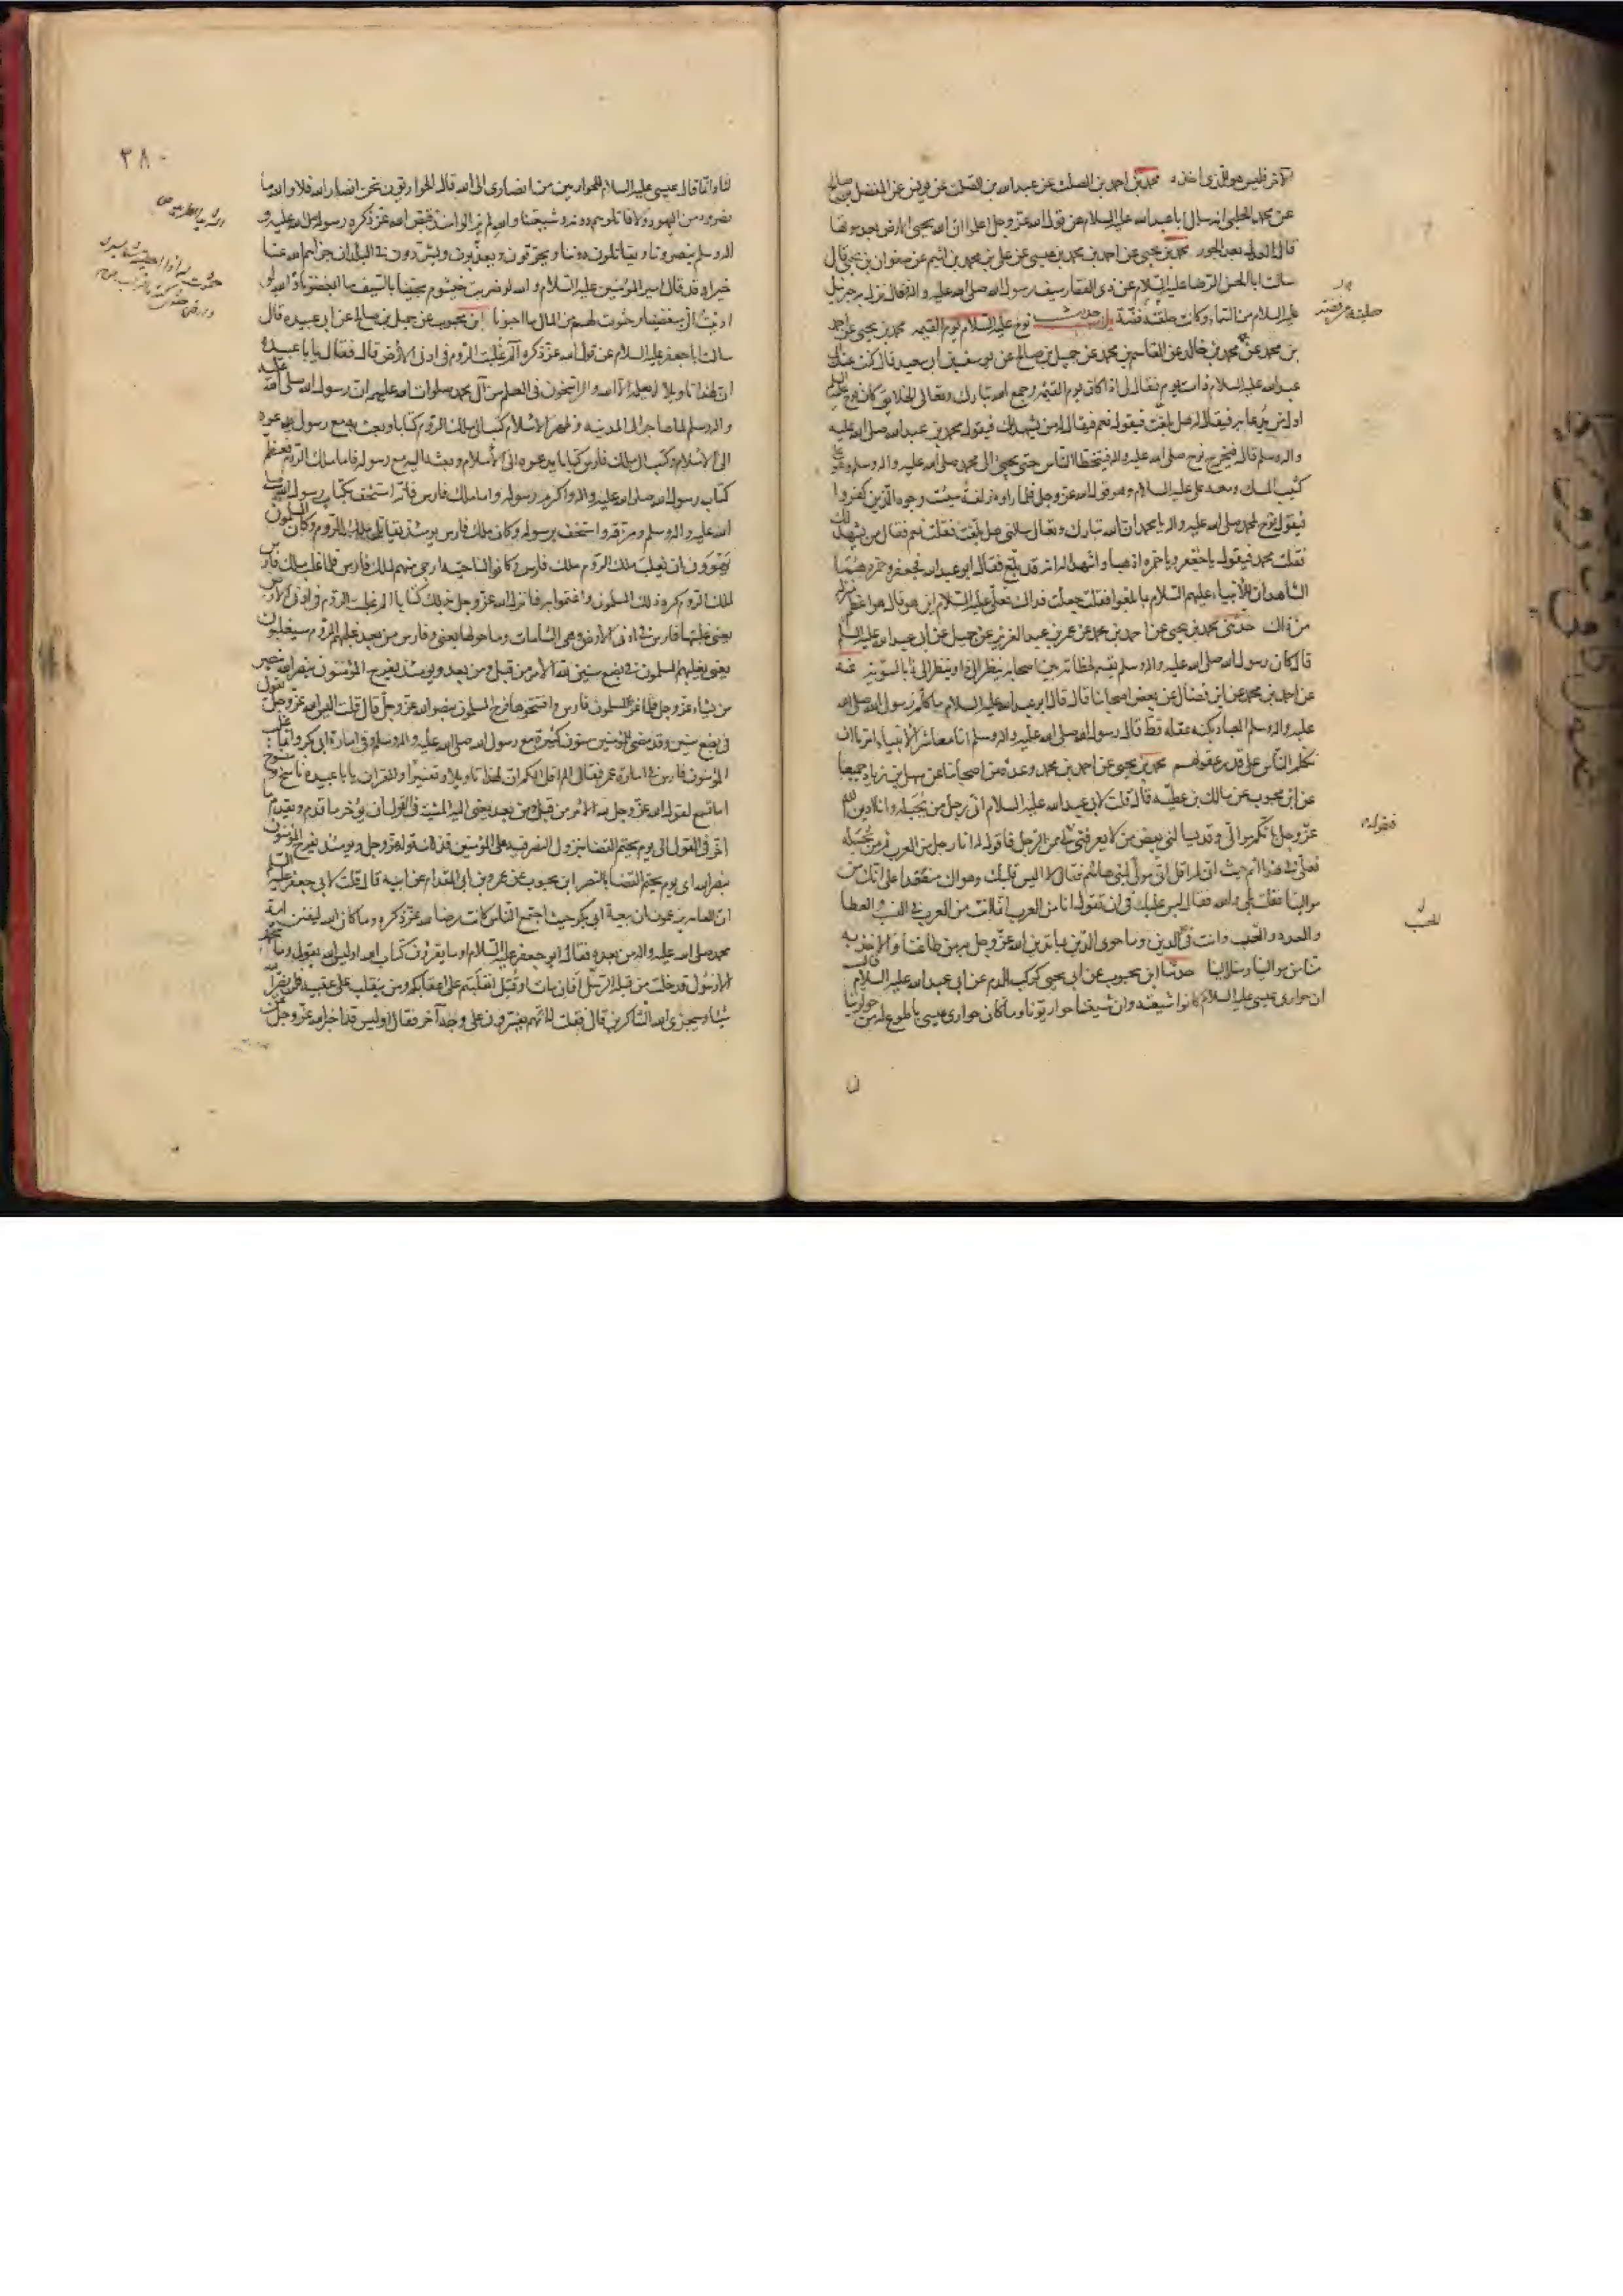 الآخر فليس هو الذي اخذه محمد بن احمد بن الصلت عن عبدالله بن الصلت عن يونس عن المفضل بن صالح
عن محمد الحلبي انه سال ابا عبدالله عليه السلام عن قول الله عز وجل اعلموا ان الله يحيي الارض بعد موتها
قال العدل بعد الجور محمد بن يحيى عن احمد بن محمد بن عيسى عن علي بن محمد بن اشيم عن صفوان بن يحيى قال
سالت ابا الحسن الرضا عليه السلام عن ذي الفقار سيف رسول الله صلى الله عليه واله فقال نزل به جبرئيل
عليه السلام من السماء وكانت حلقته فضة حديث نوح عليه السلام يوم القيمه محمد بن يحيى عن احمد
بن محمد عن محمد بن خالد عن القاسم بن محمد عن جميل بن صالح عن يوسف بن ابي سعيد قال كنت عند ابي
عبدالله عليه السلام ذات يوم فقال لي اذا كان يوم القيمة وجمع الله تبارك وتعالى الخلايق كان نوح عليه السلم
اول من يدعا به فيقال له هل بلغت فيقول نعم فيقال له من يشهد لك فيقول محمد بن عبدالله صلى الله عليه
واله وسلم قال فيخرج نوح صلى الله عليه واله فيتخطا الناس حتى يجيئ الى محمد صلى الله عليه واله وسلم وهو على
كثيب المسك ومعه علي عليه السلام وهو قول الله عز وجل فلما راوه زلفة سيئت وجوه الذين كفروا
فيقول نوح لمحمد صلى الله عليه واله يا محمد ان الله تبارك وتعالى سالني هل بلغت فقلت نعم فقال من يشهد لك
فقلت محمد فيقول يا جعفر ويا حمزه اذهبا واشهدا له انه قد بلغ فقال ابو عبدالله فجعفر وحمزه هما
الشاهدان للانبياء عليهم السلام بما بلغوا فقلت جعلت فداك فعلي عليه السلام اين هو فقال هو اعظم منزلة
من ذلك حدثني محمد بن يحيى عن احمد بن محمد عن عمر بن عبد العزيز عن جميل عن ابي عبدالله عليه السلم
قال كان رسول الله صلى الله عليه واله وسلم يقسم لحظاته بين اصحابه ينظر الى ذا وينظر الى ذا بالسوية عنه
عن احمد بن محمد عن ابن فضال عن بعض اصحابنا قال قال ابو عبدالله عليه السلام ما كلم رسول الله صلى الله
عليه واله وسلم العباد بكنه عقله قط قال رسول الله صلى الله عليه واله وسلم انا معاشر الانبياء امرنا ان
نكلم الناس على قدر عقولهم محمد بن يحيى عن احمد بن محمد وعدة من اصحابنا عن سهل بن زياد جميعا
عن ابن محبوب عن مالك بن عطيه قال قلت لابي عبدالله عليه السلام اني رجل من بجيله وانا ادين الله
عز وجل بانكم موالي وقد يسالني بعض من لا يعرفني فيقول ممن الرجل فاقول له انا رجل من العرب ثم من بجيله
فعلي في هذا اثم حيث لم اقل اني مولى لبني هاشم فقال لا اليس قلبك وهواك منعقدا على انك من
موالينا فقلت بلى والله فقال ليس عليك في ان تقول انا من العرب انما انت من العرب في النسب والعطا
والعدد والحسب وانت في الدين وما حوى الدين بما تدين الله عز وجل به من طاعتنا والاخذ به
منا من موالينا ومنا والينا حدثنا ابن محبوب عن ابي يحيى كوكب الدم عن ابي عبدالله عليه السلام قال
ان حواري عيسى عليه السلام كانوا شيعته وان شيعتنا حواريونا وما كان حواري عيسى باطوع له من حوارينا
حلقته من فضة
فيقول
الحسب
٣٨٠
لنا وانما قال عيسى عليه السلام للحواريين من انصاري الى الله قال الحواريون نحن انصار الله فلا والله ما
نصروه من اليهود ولا قاتلوهم دونه وشيعتنا والله لم يزالوا منذ قبض الله عز ذكره رسوله صلى الله عليه و
اله وسلم ينصرونا ويقاتلون دوننا ويحرقون ويعذبون ويشردون في البلدان جزاهم الله عنا
خيرا وقد قال امير المؤمنين عليه السلام والله لو ضربت خيشوم محبينا بالسيف ما ابغضونا والله لو
ادنيت الى مبغضينا وحثوت لهم من المال ما احبونا ابن محبوب عن جميل بن صالح عن ابي عبيده قال
سالت ابا جعفر عليه السلام عن قول الله عز ذكره الم غلبت الروم في ادنى الارض قال فقال يا با عبيده
ان لهذا تاويلا لا يعلمه الا الله والراسخون في العلم من آل محمد صلوات الله عليهم ان رسول الله صلى الله عليه
واله وسلم لما هاجر الى المدينه وظهر الاسلام كتب الى ملك الروم كتابا وبعث به مع رسول يدعوه
الى الاسلام وكتب الى ملك فارس كتابا يدعوه الى الاسلام وبعثه اليه مع رسوله فاما ملك الروم فعظم
كتاب رسول الله صلى الله عليه واله واكرم رسوله واما ملك فارس فانه استخف بكتاب رسول الله صلى
الله عليه واله وسلم ومزقه واستخف برسوله وكان ملك فارس يومئذ يقاتل ملك الروم وكان المسلمون
يهوون ان يغلب ملك الروم ملك فارس وكانوا لناحيته ارجى منهم لملك فارس فلما غلب ملك فارس
ملك الروم كره ذلك المسلمون واغتموا به فانزل الله عز وجل بذلك كتابا الم غلبت الروم في ادنى الارض
يعني غلبتها فارس في ادنى الارض وهي الشامات وما حولها يعني وفارس من بعد غلبهم الروم سيغلبون
يعني يغلبهم المسلمون في بضع سنين لله الامر من قبل ومن بعد ويومئذ يفرح المؤمنون بنصر الله ينصر
من يشاء عز وجل فلما غزا المسلمون فارس وافتتحوها فرح المسلمون بنصر الله عز وجل قال قلت اليس الله عز وجل يقول
في بضع سنين وقد مضى للمؤمنين سنون كثيرة مع رسول الله صلى الله عليه واله وسلم وفي امارة ابي بكر وانما غلب
المؤمنون فارس في امارة عمر فقال الم اقل لكم ان لهذا تاويلا وتفسيرا والقران يا با عبيده ناسخ ومنسوخ
اما تسمع لقول الله عز وجل لله الامر من قبل ومن بعد يعني اليه المشية في القول ان يؤخر ما قدم ويقدم ما
اخر في القول الى يوم يحتم القضا بنزول النصر فيه على المؤمنين فذلك قوله عز وجل ويومئذ يفرح المؤمنون
بنصر الله اي يوم يحتم القضا بالنصر ابن محبوب عن عمرو بن ابي المقدام عن ابيه قال قلت لابي جعفر عليه السلم
ان العامه يزعمون ان بيعة ابي بكر حيث اجتمع الناس كانت رضا لله عز ذكره وما كان الله ليفتن امة
محمد صلى الله عليه واله من بعده فقال ابو جعفر عليه السلام او ما يقرؤن كتاب الله اوليس الله يقول وما محمد
الا رسول قد خلت من قبله الرسل افان مات او قتل انقلبتم على اعقابكم ومن ينقلب على عقبيه فلن يضر الله
شيئا وسيجزي الله الشاكرين قال فقلت له انهم يفسرون على وجه آخر فقال اوليس قد اخبر الله عز وجل عن